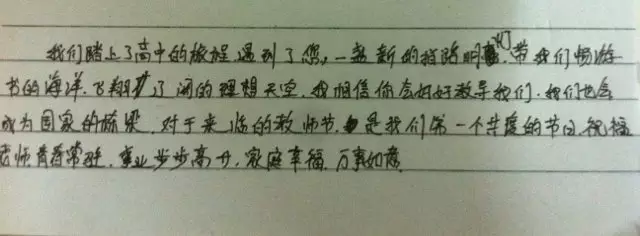 我们踏上了高中的旅程遇到了您,一盏新的指路明灯,带我们畅游
书的海洋,飞翔扩了阔的理想天空,我相信你会好好教导我们,我们也会
成为国家的栋梁,对于来临的教师节,是我们第一个共度的节日,祝福
老师青春常驻,事业步步高升,家庭幸福,万事如意